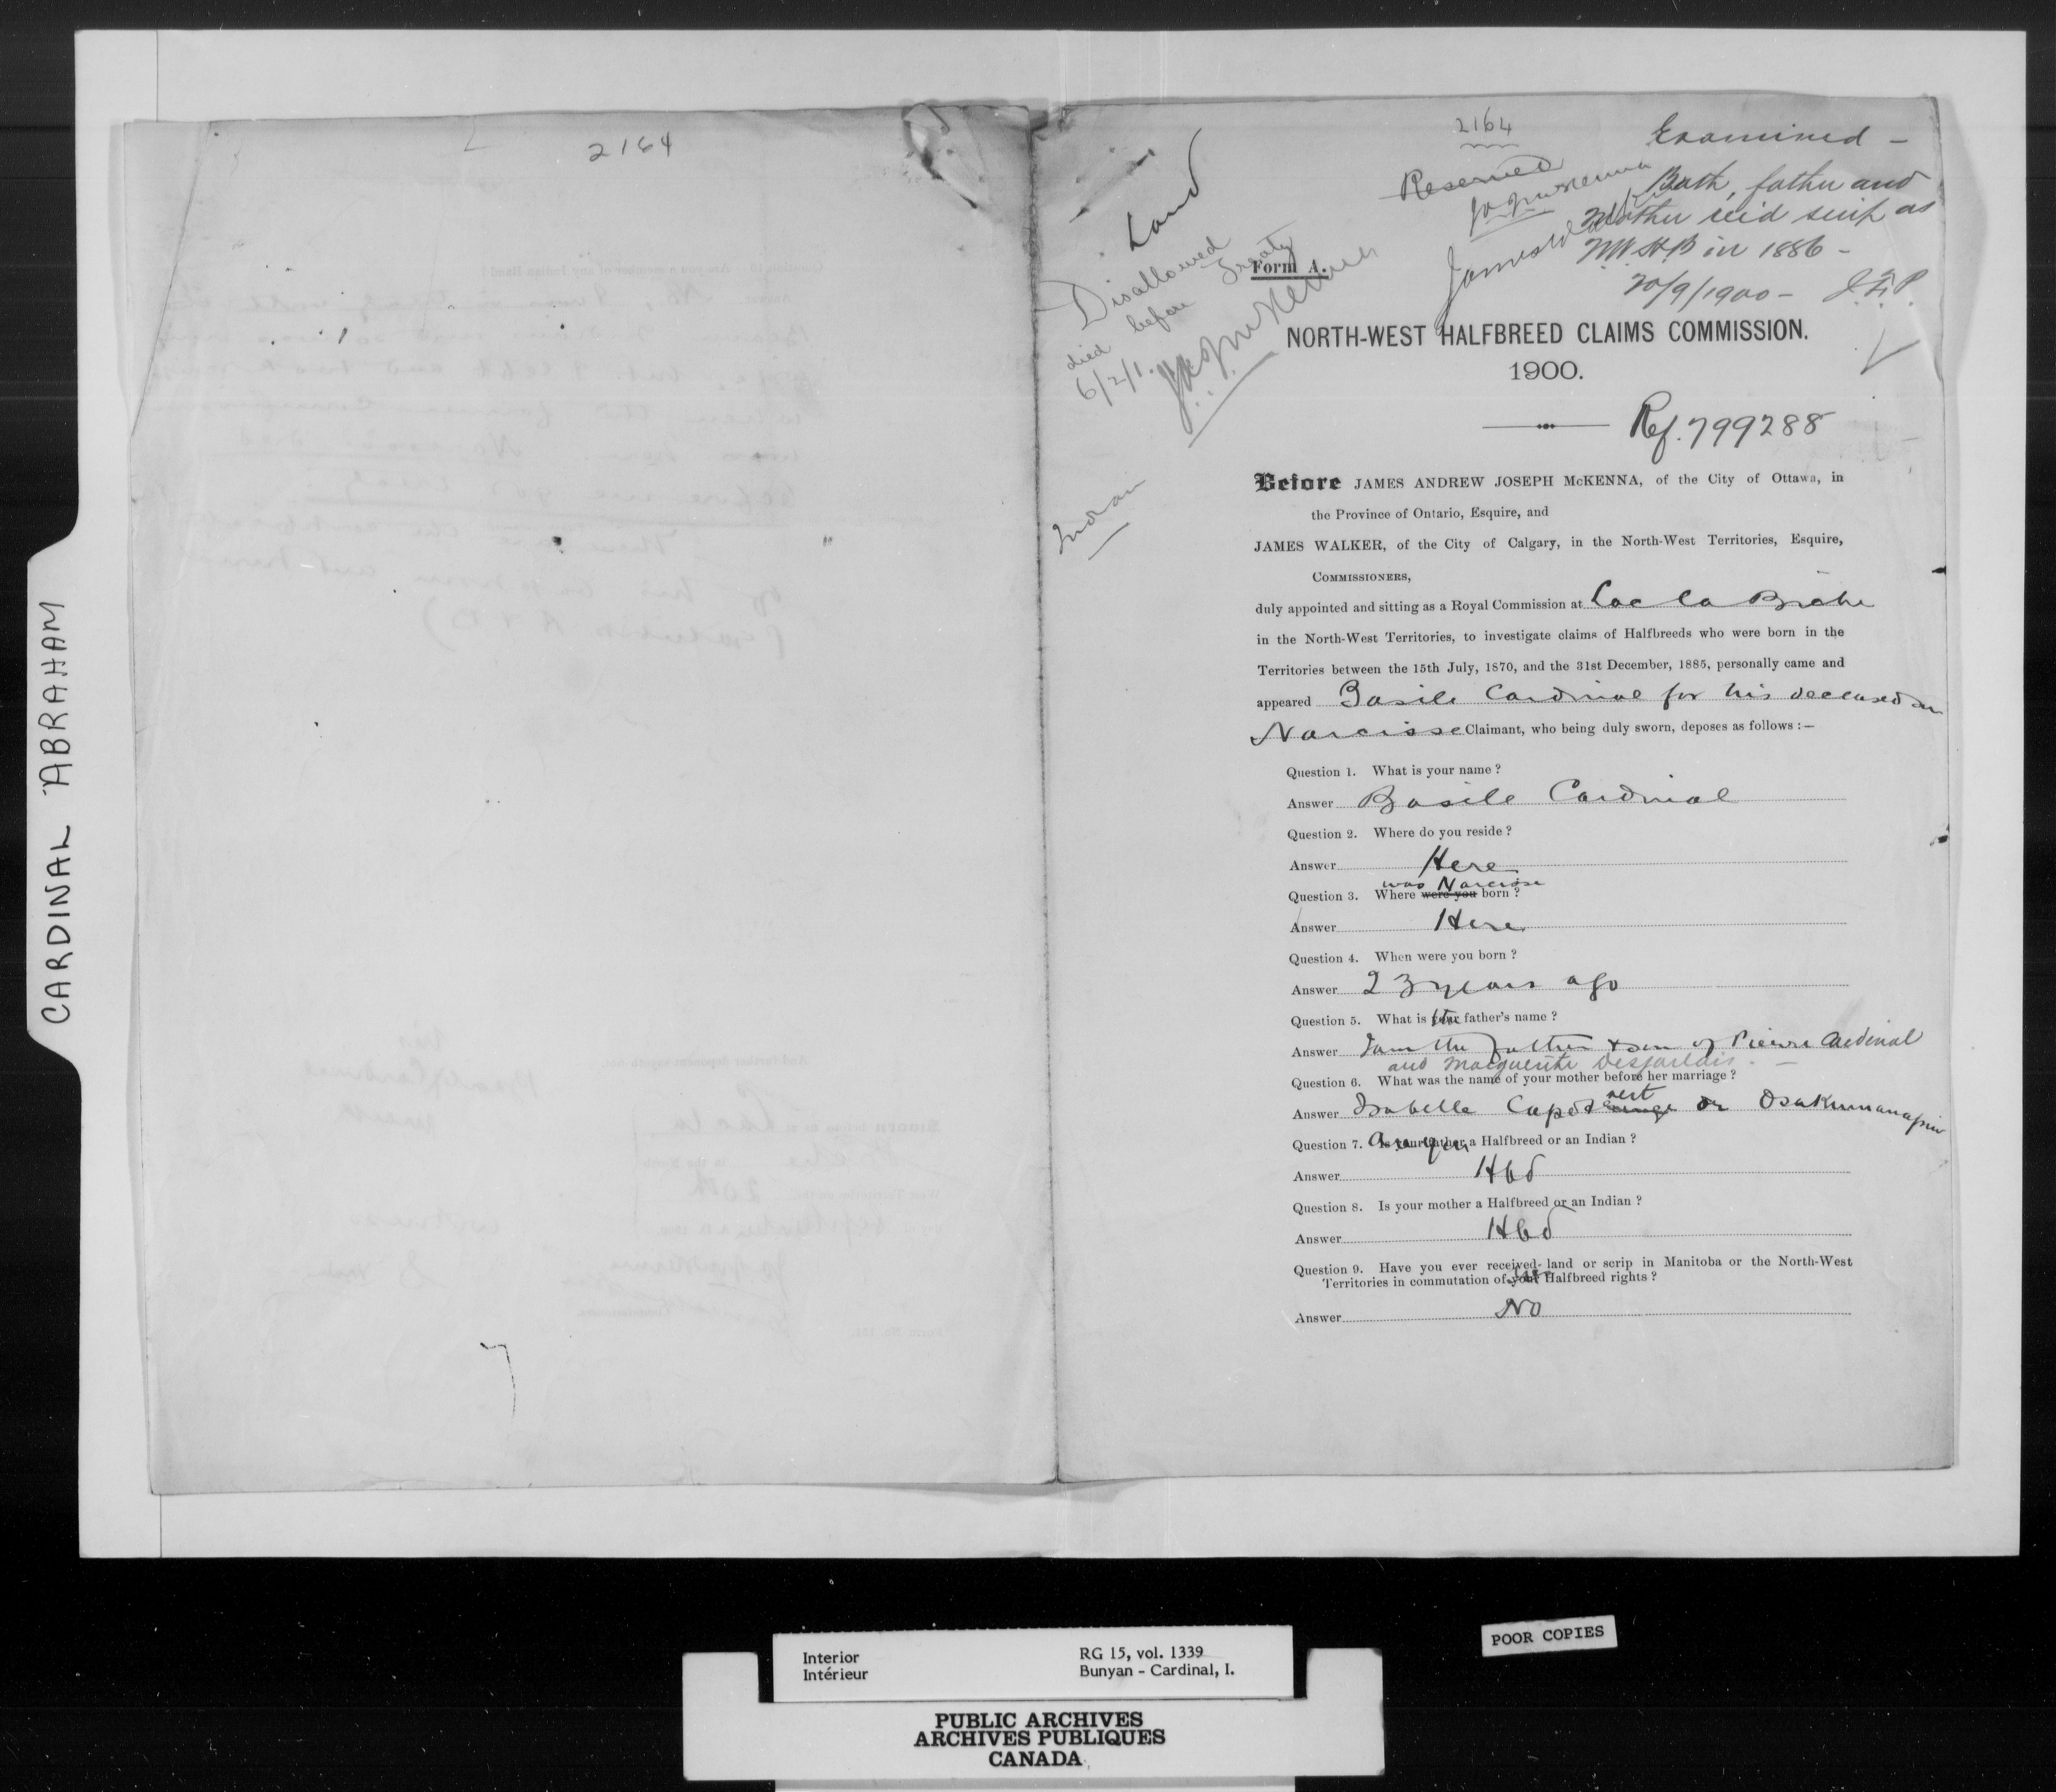 CARDINAL ABRAHAM
2164
2164
Examined -
Reserved
Both, father and
Mother rec'd scrip as
NWHB in 1886 -
20/9/1900 - J.F.P.
Land
Disallowed
died before Treaty
6/2/1. JAJ McKenna
Indian
Form A.
NORTH-WEST HALFBREED CLAIMS COMMISSION.
1900.
Ref. 799288
Before JAMES ANDREW JOSEPH McKENNA, of the City of Ottawa, in
the Province of Ontario, Esquire, and
JAMES WALKER, of the City of Calgary, in the North-West Territories, Esquire,
COMMISSIONERS,
duly appointed and sitting as a Royal Commission at Lac la Biche
in the North-West Territories, to investigate claims of Halfbreeds who were born in the
Territories between the 15th July, 1870, and the 31st December, 1885, personally came and
appeared Basile Cardinal for his deceased son
Narcisse Claimant, who being duly sworn, deposes as follows :—
Question 1. What is your name ?
Answer Basile Cardinal
Question 2. Where do you reside ?
Answer Here
was Narcisse
Question 3. Where were you born ?
Answer Here
Question 4. When were you born ?
Answer 23 years ago
Question 5. What is the father's name ?
Answer I am the father & son of Pierre Cardinal
and Marguerite Desjarlais. -
Question 6. What was the name of your mother before her marriage ?
Answer Isabelle Capot vert or Osakumanapiw
Question 7. Are you a Halfbreed or an Indian ?
Answer Hbd
Question 8. Is your mother a Halfbreed or an Indian ?
Answer Hbd
Question 9. Have you ever received land or scrip in Manitoba or the North-West
Territories in commutation of your Halfbreed rights ?
Answer No
Interior
Intérieur
RG 15, vol. 1339
Bunyan - Cardinal, I.
POOR COPIES
PUBLIC ARCHIVES
ARCHIVES PUBLIQUES
CANADA